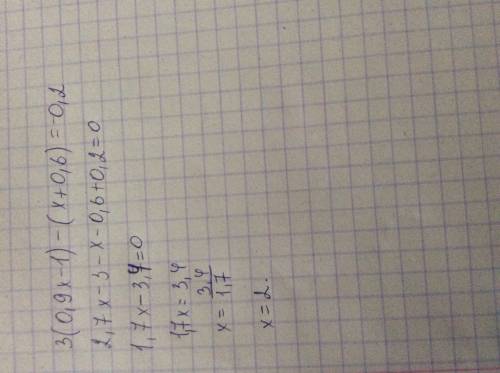 3(0,9x-1)-(x+0,6)=-0,2
2,7x-3-x-0,6+0,2=0
1,7x-3,4=0
1,7x=3,4
x=3,4/1,7
x=2.